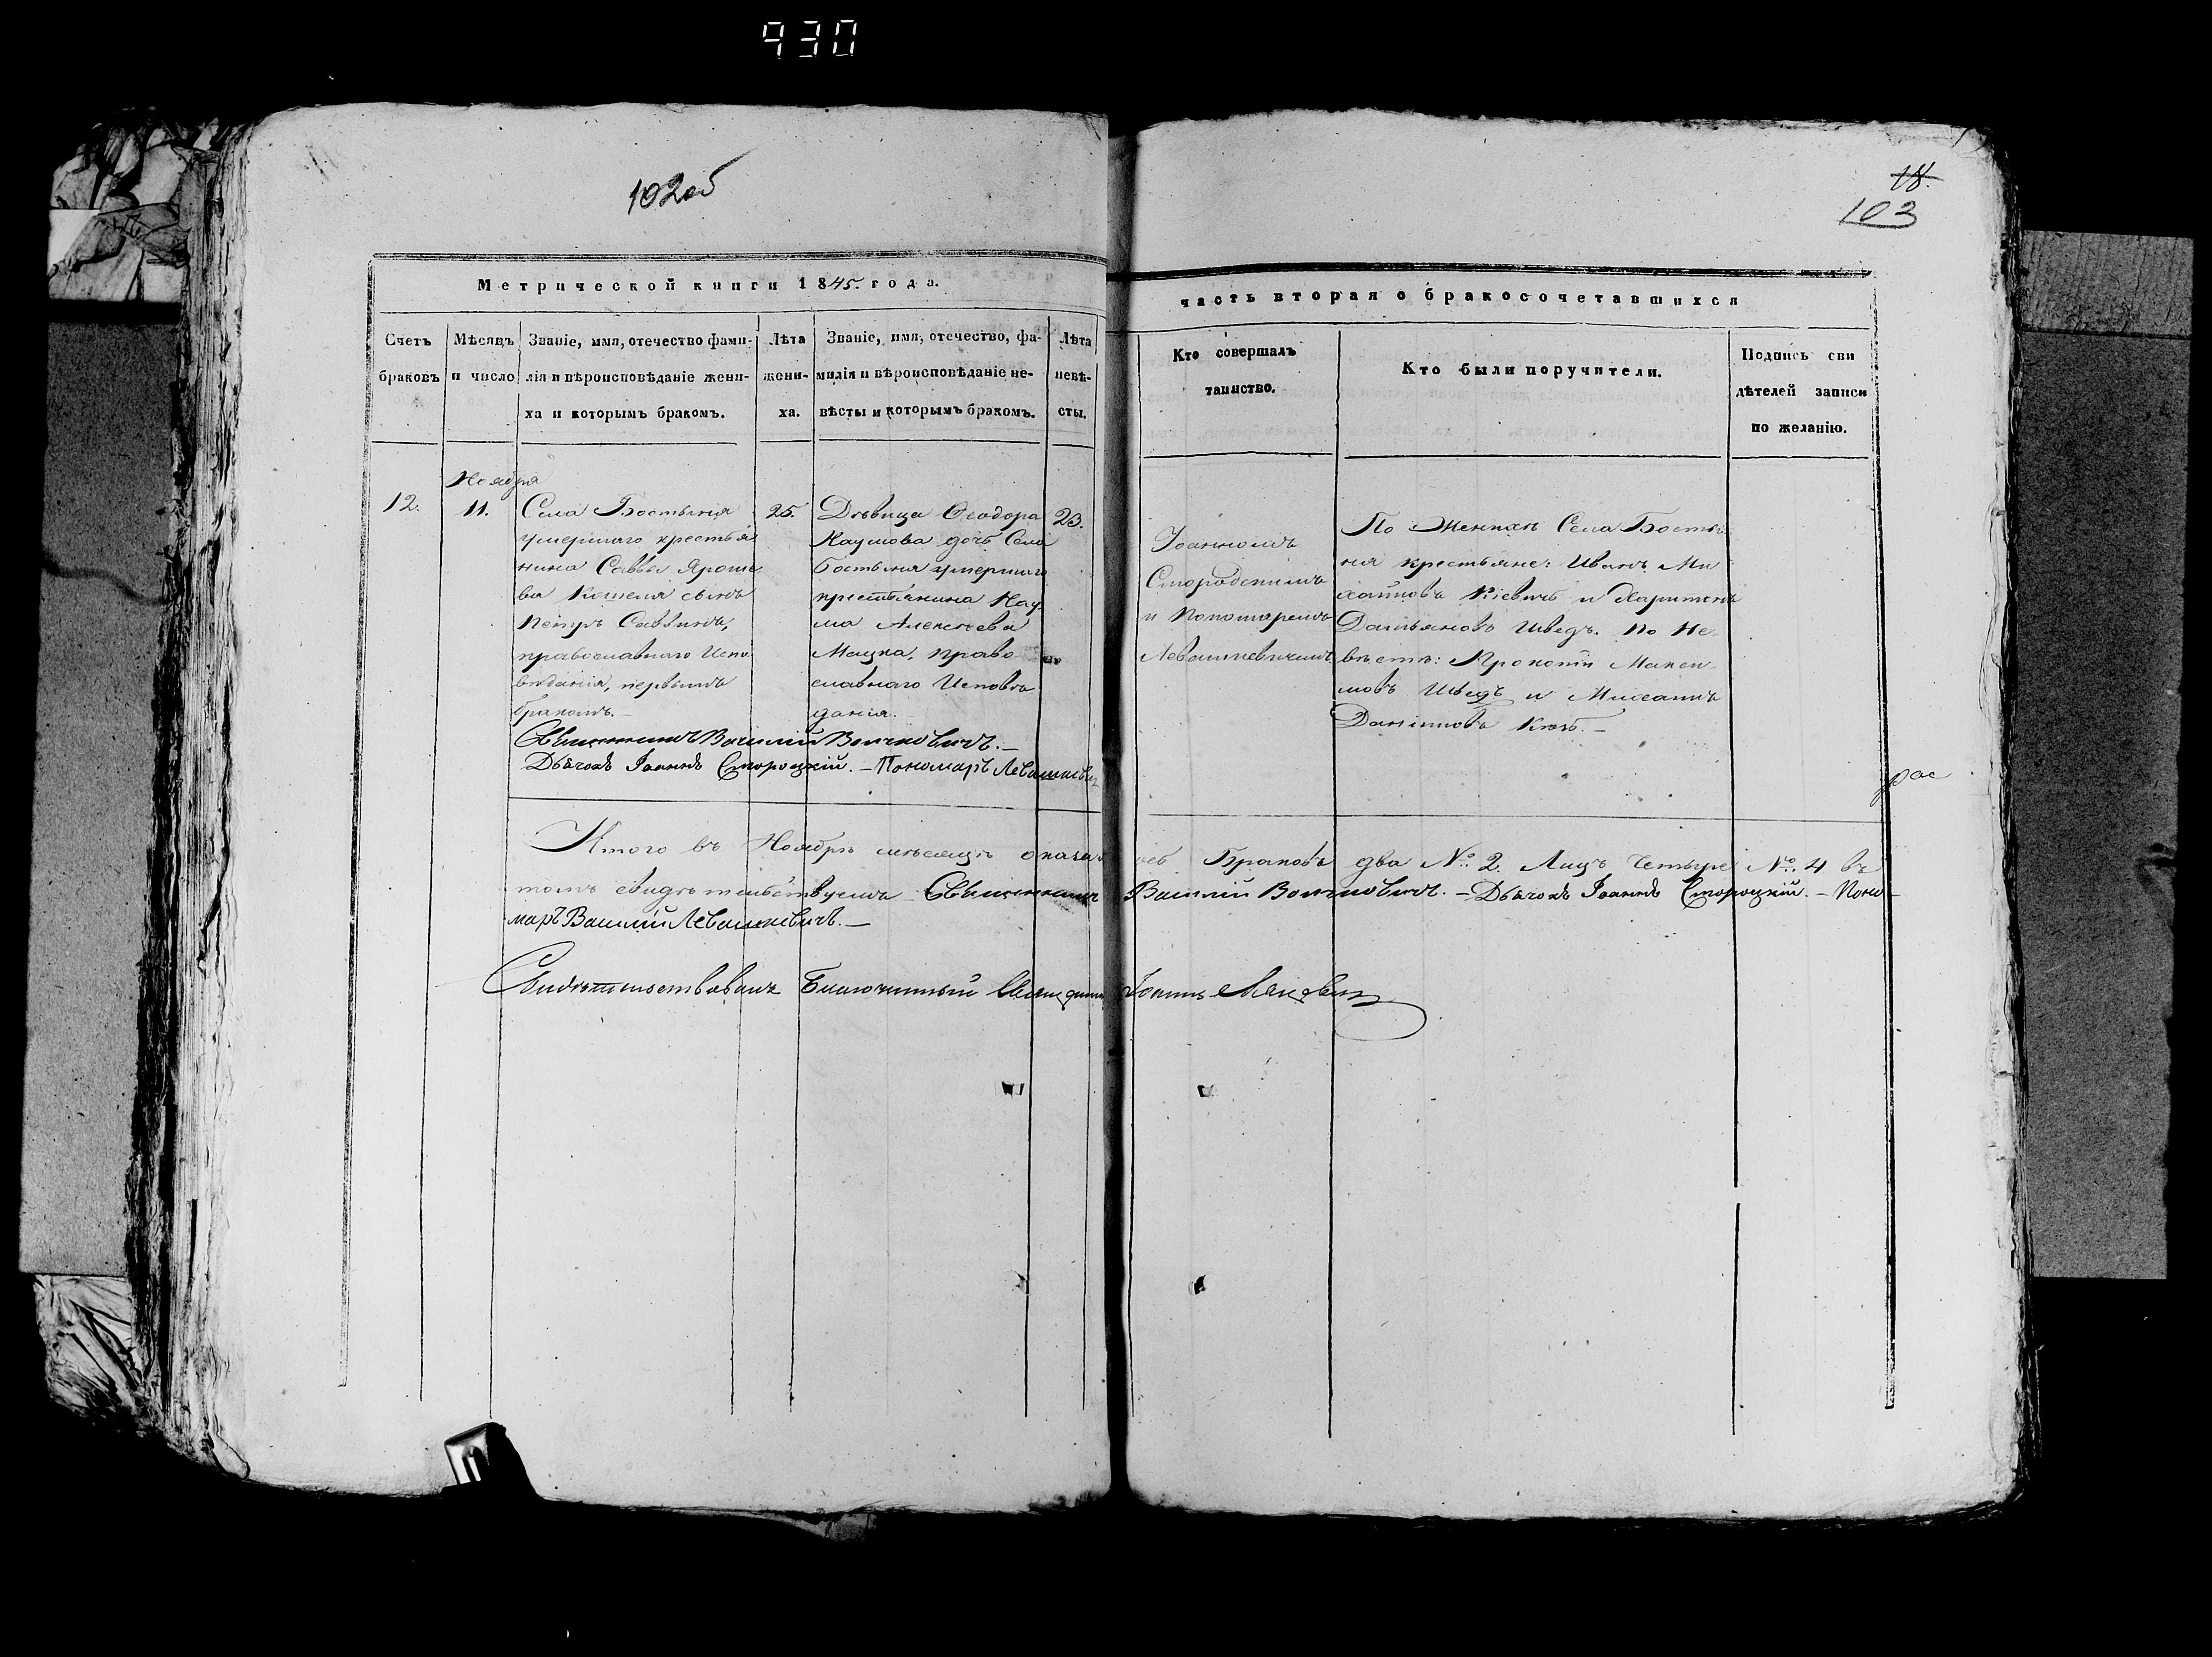 930
102об
18.
103
Метрической книги 1845. года.
часть вторая о бракосочетавшихся
Счетъ браковъ
Мѣсяцъ и число
Званіе, имя, отечество фами-
лія и вѣроисповѣданіе жени-
ха и которымъ бракомъ.
Лѣта
жени-
ха.
Званіе, имя, отечество, фа-
милія и вѣроисповѣданіе не-
вѣсты и которымъ бракомъ.
Лѣта
невѣ-
сты.
Кто совершалъ
таинство.
Кто были поручители.
Подпись сви
дѣтелей записи
по желанію.
12.
Ноября
11.
Села Бостыня
умершаго крестья
нина Саввы Яроше
ва Кошеля сынъ
Петръ Саввинъ,
православнаго Испо
вѣданія, первымъ
бракомъ.
25.
Дѣвица Ѳеодора
Наумова дочь Села
Бостыня умершаго
крестьянина Нау
ма Алексѣева
Мацка, право
славнаго Исповѣ
данія.
23.
Іоанномъ
и Пономаремъ
Левашкевичемъ
По Женихѣ Села Босты
ня крестьяне: Иванъ Ми
хайловъ Кіевичъ и Харитонъ
Даміановъ Шведъ. По Не
вѣстѣ: Прокопій Макси
мовъ Шведъ и Михаилъ
Даніиловъ
Священникъ Василій Волчковичъ. —
Дьячокъ Іоаннъ Сторожкій. — Пономарь Левашкевич
рас
Итого въ Ноябрѣ мѣсяцѣ оказалось Браковъ два №. 2. Лицъ Четыре №. 4 въ
томъ свидѣтельствуемъ Священникъ Василій Волчковичъ. — Дьячокъ Іоаннъ Сторожкій. — Поно-
марь Василій Левашкевичъ. —
Свидѣтельствовалъ Благочинный Священникъ Іоаннъ